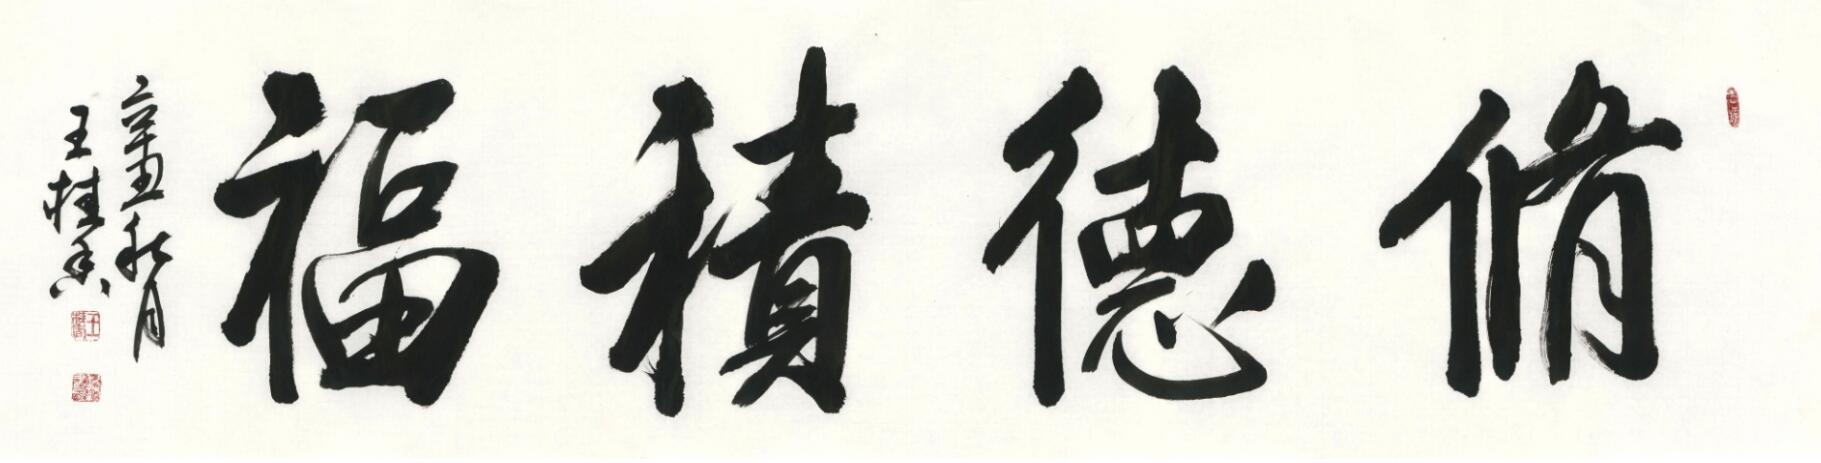 脩德積福
辛丑秋月
王桂香